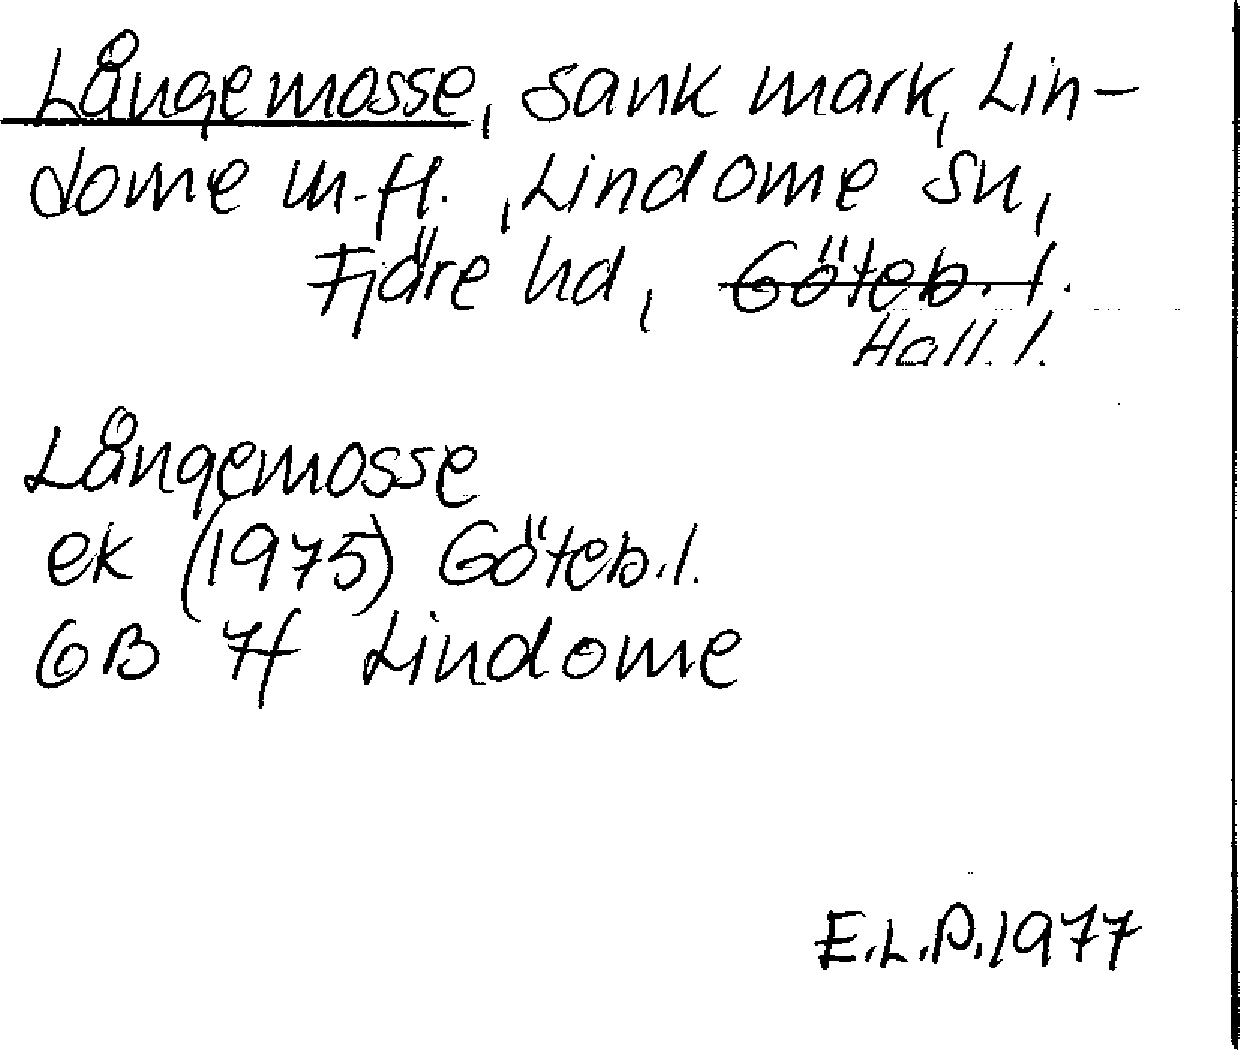 Långemosse, sank mark, Lin-
dome m.fl., Lindome sn,
Fjäre hd, Göteb. l.
Hall. l.
Långemosse
ek (1975) Göteb.l.
6B 7f Lindome
E.L.P. 1977